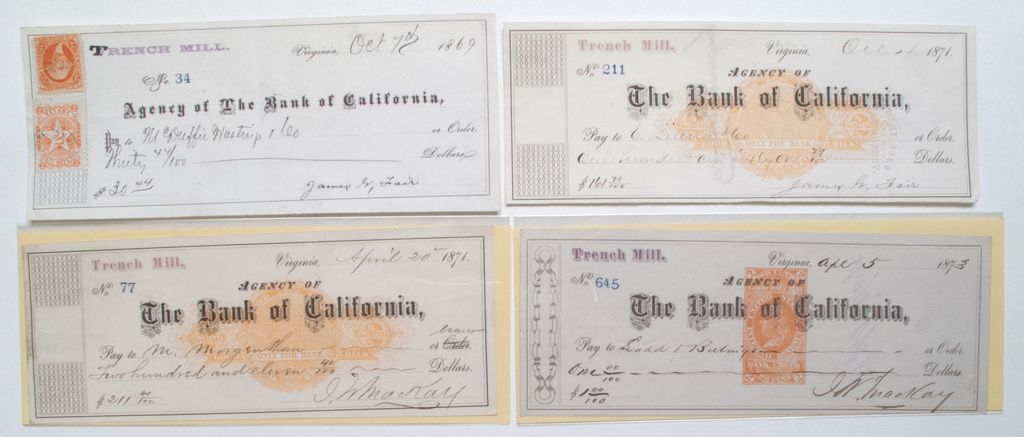 TRENCH MILL.
Virginia, Oct 7th 1869
No. 34
Agency of The Bank of California,
Pay to McDuffie Hastings & Co or Order.
Thirty 44/100 Dollars
$ 30 44
James G. Fair
Trench Mill.
Virginia, Oct 1871.
No. 211
AGENCY OF
The Bank of California,
Pay to or Order.
One hundred and sixty one 79/100 Dollars.
ONLY FOR BANK CHECK
$ 161 79/100
James G. Fair
Trench Mill.
Virginia, April 20 1871.
No. 77
AGENCY OF
The Bank of California,
bearer
Pay to M. Morgenthau or Order.
ONLY FOR BANK CHECK
Two hundred and eleven /100 Dollars.
$ 211 /100
J W Mackay
Trench Mill.
Virginia, Apl 5 1873
No. 645
AGENCY OF
The Bank of California,
Pay to Ladd & or Order.
One 00/100 Dollars.
BANK CHECK
$ 1 00/100
J W Mackay